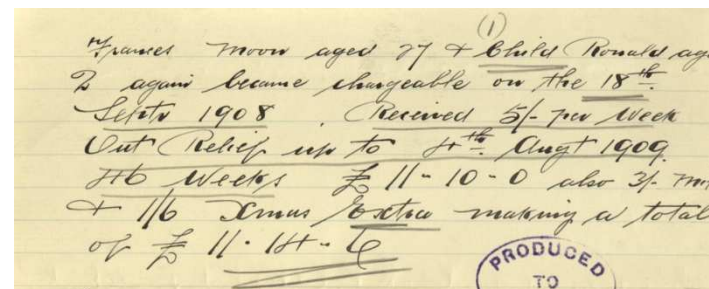 (1)
Frances Moon aged 27 & Child Ronald age
2 again became chargeable on the 18th
Septr 1908. Received 5/- per Week
Out Relief up to 4th Augt 1909
46 Weeks £11-10-0 also 3/-
& 1/6 Xmas Extra making a total
of £11-14-6
PRODUCED
TO